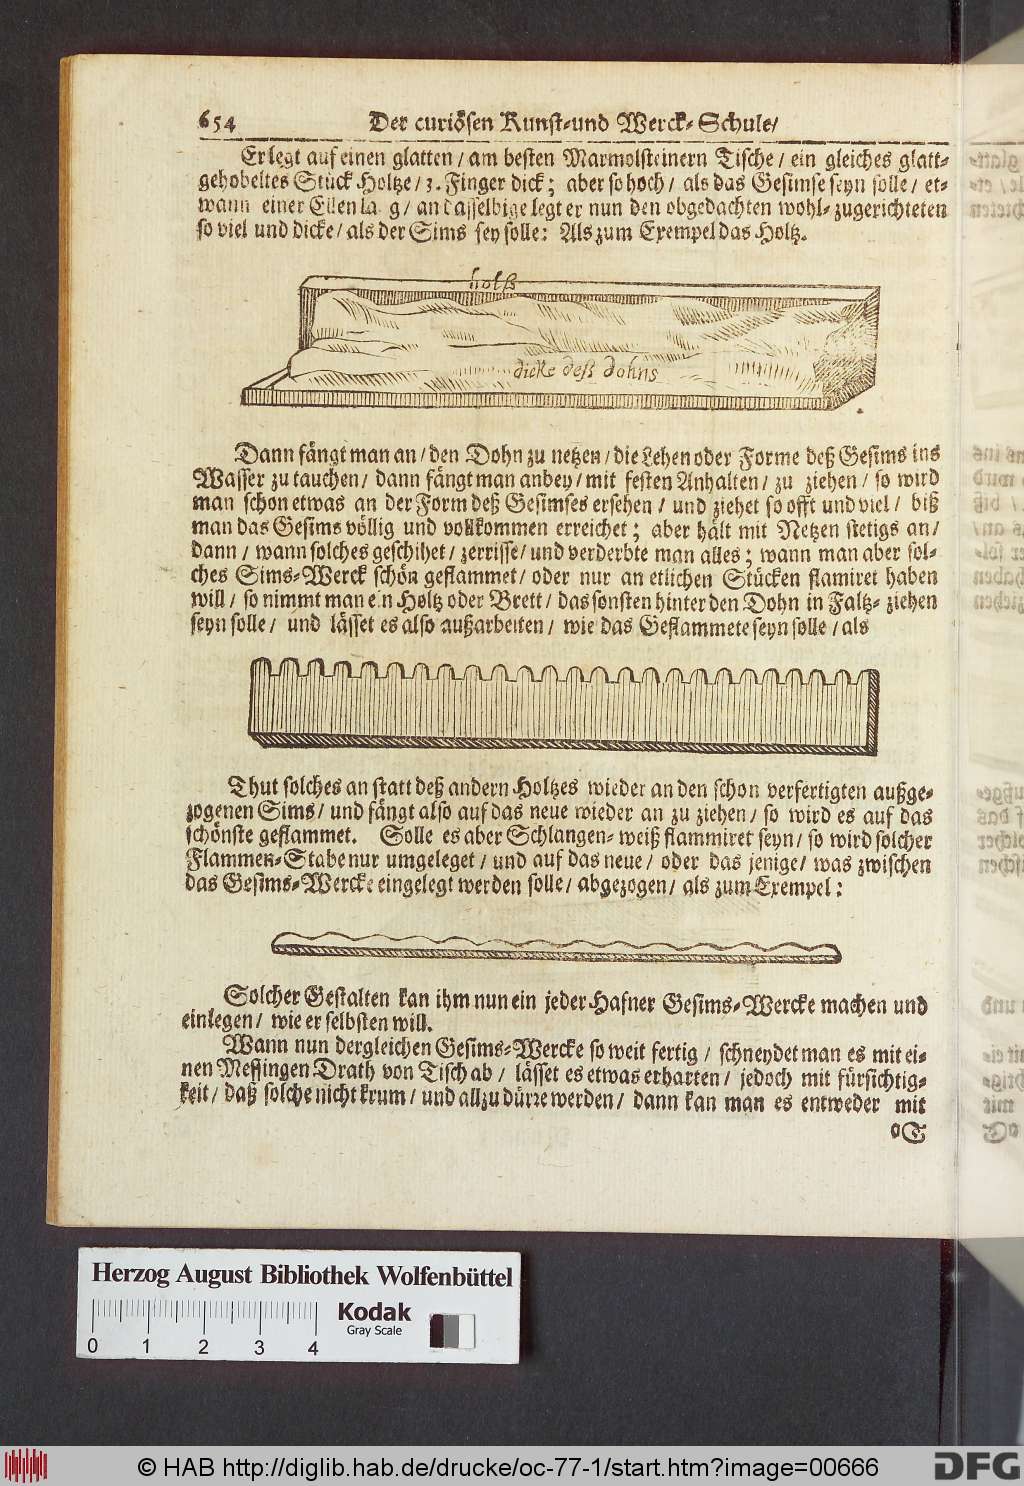 654 Der curiösen Kunst-und Werck-Schule/
Er legt auf einen glatten / am besten Marmolsteinern Tische / ein gleiches glatt-
gehobeltes Stück Holtze / 3. Finger dick; aber so hoch / als das Gesimse seyn solle / et-
wann einer Ellen la g / an dasselbige legt er nun den obgedachten wohl-zugerichteten
so viel und dicke / als der Sims sey solle: Als zum Exempel das Holtz.
holß
dicke deß dohns
Dann fängt man an / den Dohn zu netzen / die Lehen oder Forme deß Gesims ins
Wasser zu tauchen / dann fängt man anbey / mit festen Anhalten / zu ziehen / so wird
man schon etwas an der Form deß Gesimses ersehen / und ziehet so offt und viel / biß
man das Gesims völlig und vollkommen erreichet; aber hält mit Netzen stetigs an /
dann / wann solches geschihet / zerrisse / und verderbte man alles; wann man aber sol-
ches Sims-Werck schön geflammet / oder nur an etlichen Stücken flamiret haben
will / so nimmt man ein Holtz oder Brett / das sonsten hinter den Dohn in Faltz-ziehen
seyn solle / und lässet es also außarbeiten / wie das Geflammete seyn solle / als
Thut solches an statt deß andern Holtzes wieder an den schon verfertigten außge-
zogenen Sims / und fängt also auf das neue wieder an zu ziehen / so wird es auf das
schönste geflammet. Solle es aber Schlangen-weiß flammiret seyn / so wird solcher
Flammen-Stabe nur umgeleget / und auf das neue / oder das jenige / was zwischen
das Gesims-Wercke eingelegt werden solle / abgezogen / als zum Exempel:
Solcher Gestalten kan ihm nun ein jeder Hafner Gesims-Wercke machen und
einlegen / wie er selbsten will.
Wann nun dergleichen Gesims-Wercke so weit fertig / schneydet man es mit ei-
nen Messingen Drath von Tisch ab / lässet es etwas erharten / jedoch mit fürsichtig-
keit / daß solche nicht krum / und allzu dürre werden / dann kan man es entweder mit
Herzog August Bibliothek Wolfenbüttel
Kodak
Gray Scale
0 1 2 3 4
© HAB http://diglib.hab.de/drucke/oc-77-1/start.htm?image=00666
DFG